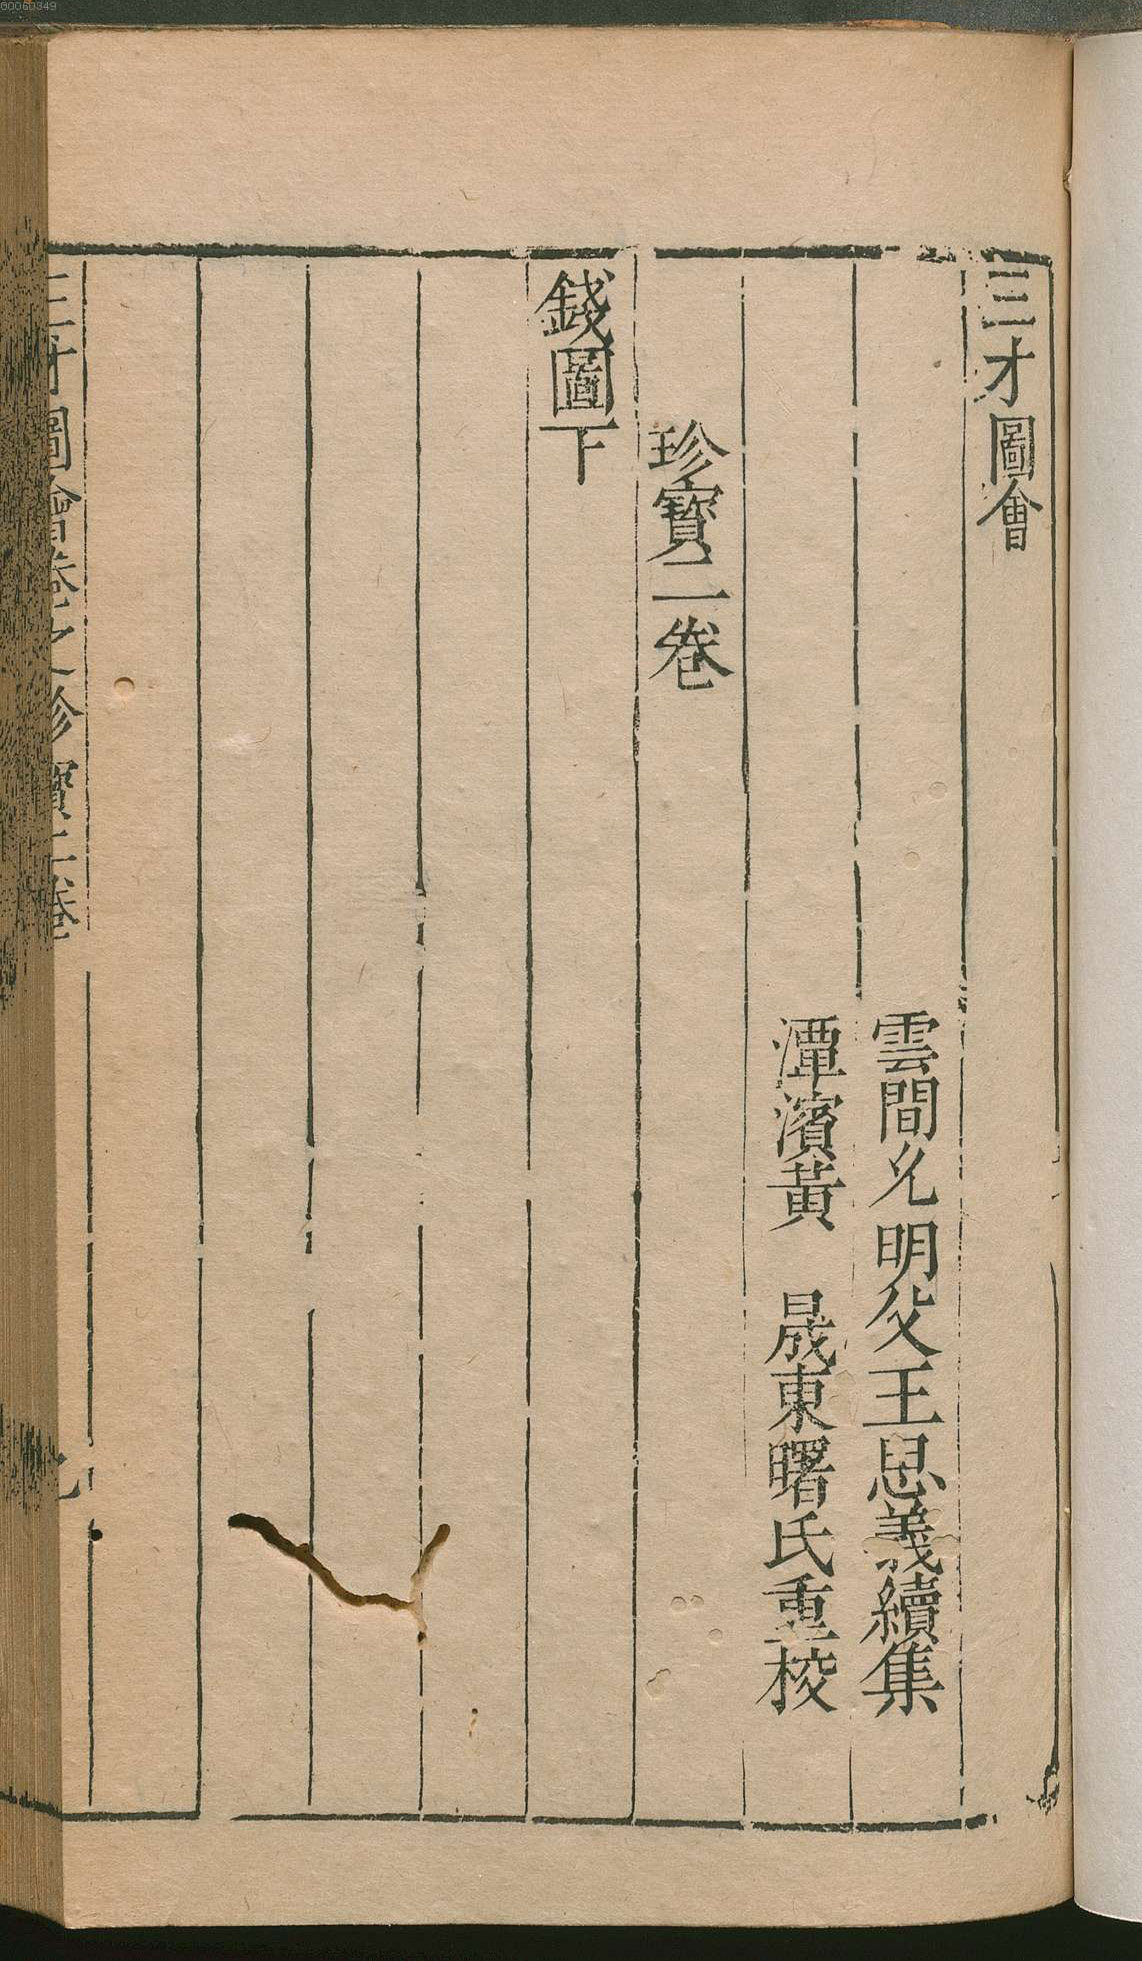 三才圖會
雲間允明父王思義續集
潭濱黃　晟東曙氏重校
珍寶二卷
錢圖下
三才圖會卷之珍寶二卷
00060349